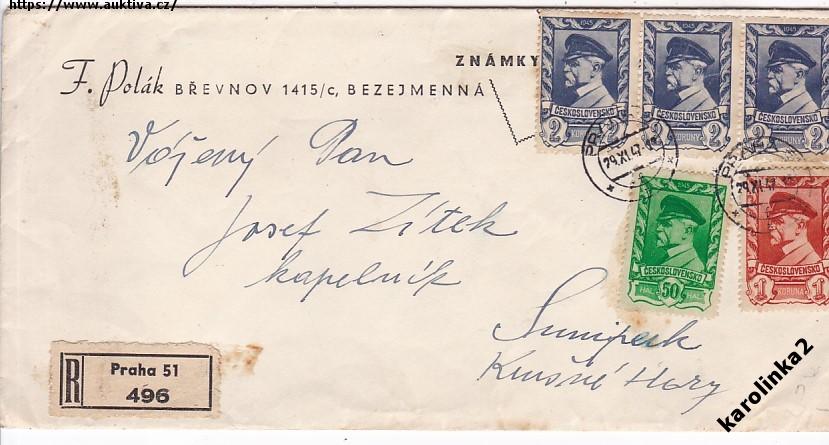 https://www.auktiva.cz/
ZNÁMKY
F. Polák BŘEVNOV 1415/c, BEZEJMENNÁ
1945
ČESKOSLOVENSKO
2 KORUNY 2
1945
ČESKOSLOVENSKO
2 KORUNY 2
1945
ČESKOSLOVENSKO
2 KORUNY 2
29.XI.47
29.XI.47
Vážený Pan
Josef Zítek
kapelník
1945
ČESKOSLOVENSKO
HAL. 50 HAL.
ČESKOSLOVENSKO
1 KORUNA 1
Krušné Hory
R
Praha 51
496
karolinka2